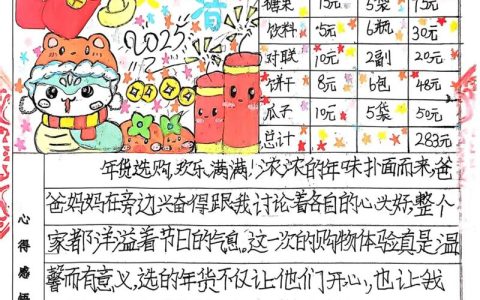 春
2025
糖果 15元 5袋 75元
饮料 5元 6瓶 30元
对联 10元 2副 20元
饼干 8元 6包 48元
瓜子 10元 5袋 50元
总计 283元
年货选购,欢乐满满!浓浓的年味扑面而来,爸
爸妈妈在旁边兴奋得跟我讨论着各自的心头好,整个
家都洋溢着节日的气息。这一次的购物体验真是温
馨而有意义,选的年货不仅让他们开心,也让我
心得感悟